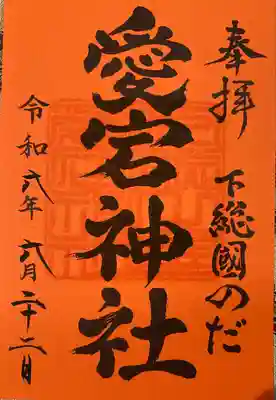 奉拝
下総國のだ
愛宕神社
令和六年六月二十二日